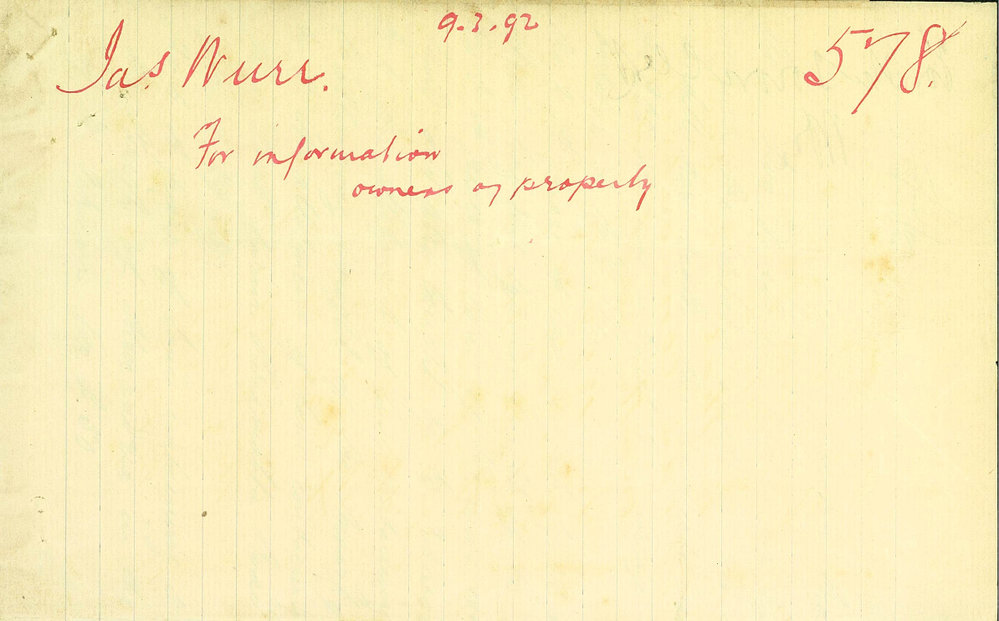 9.3.92
Jas. Wurr. 578.
For information
owners of property